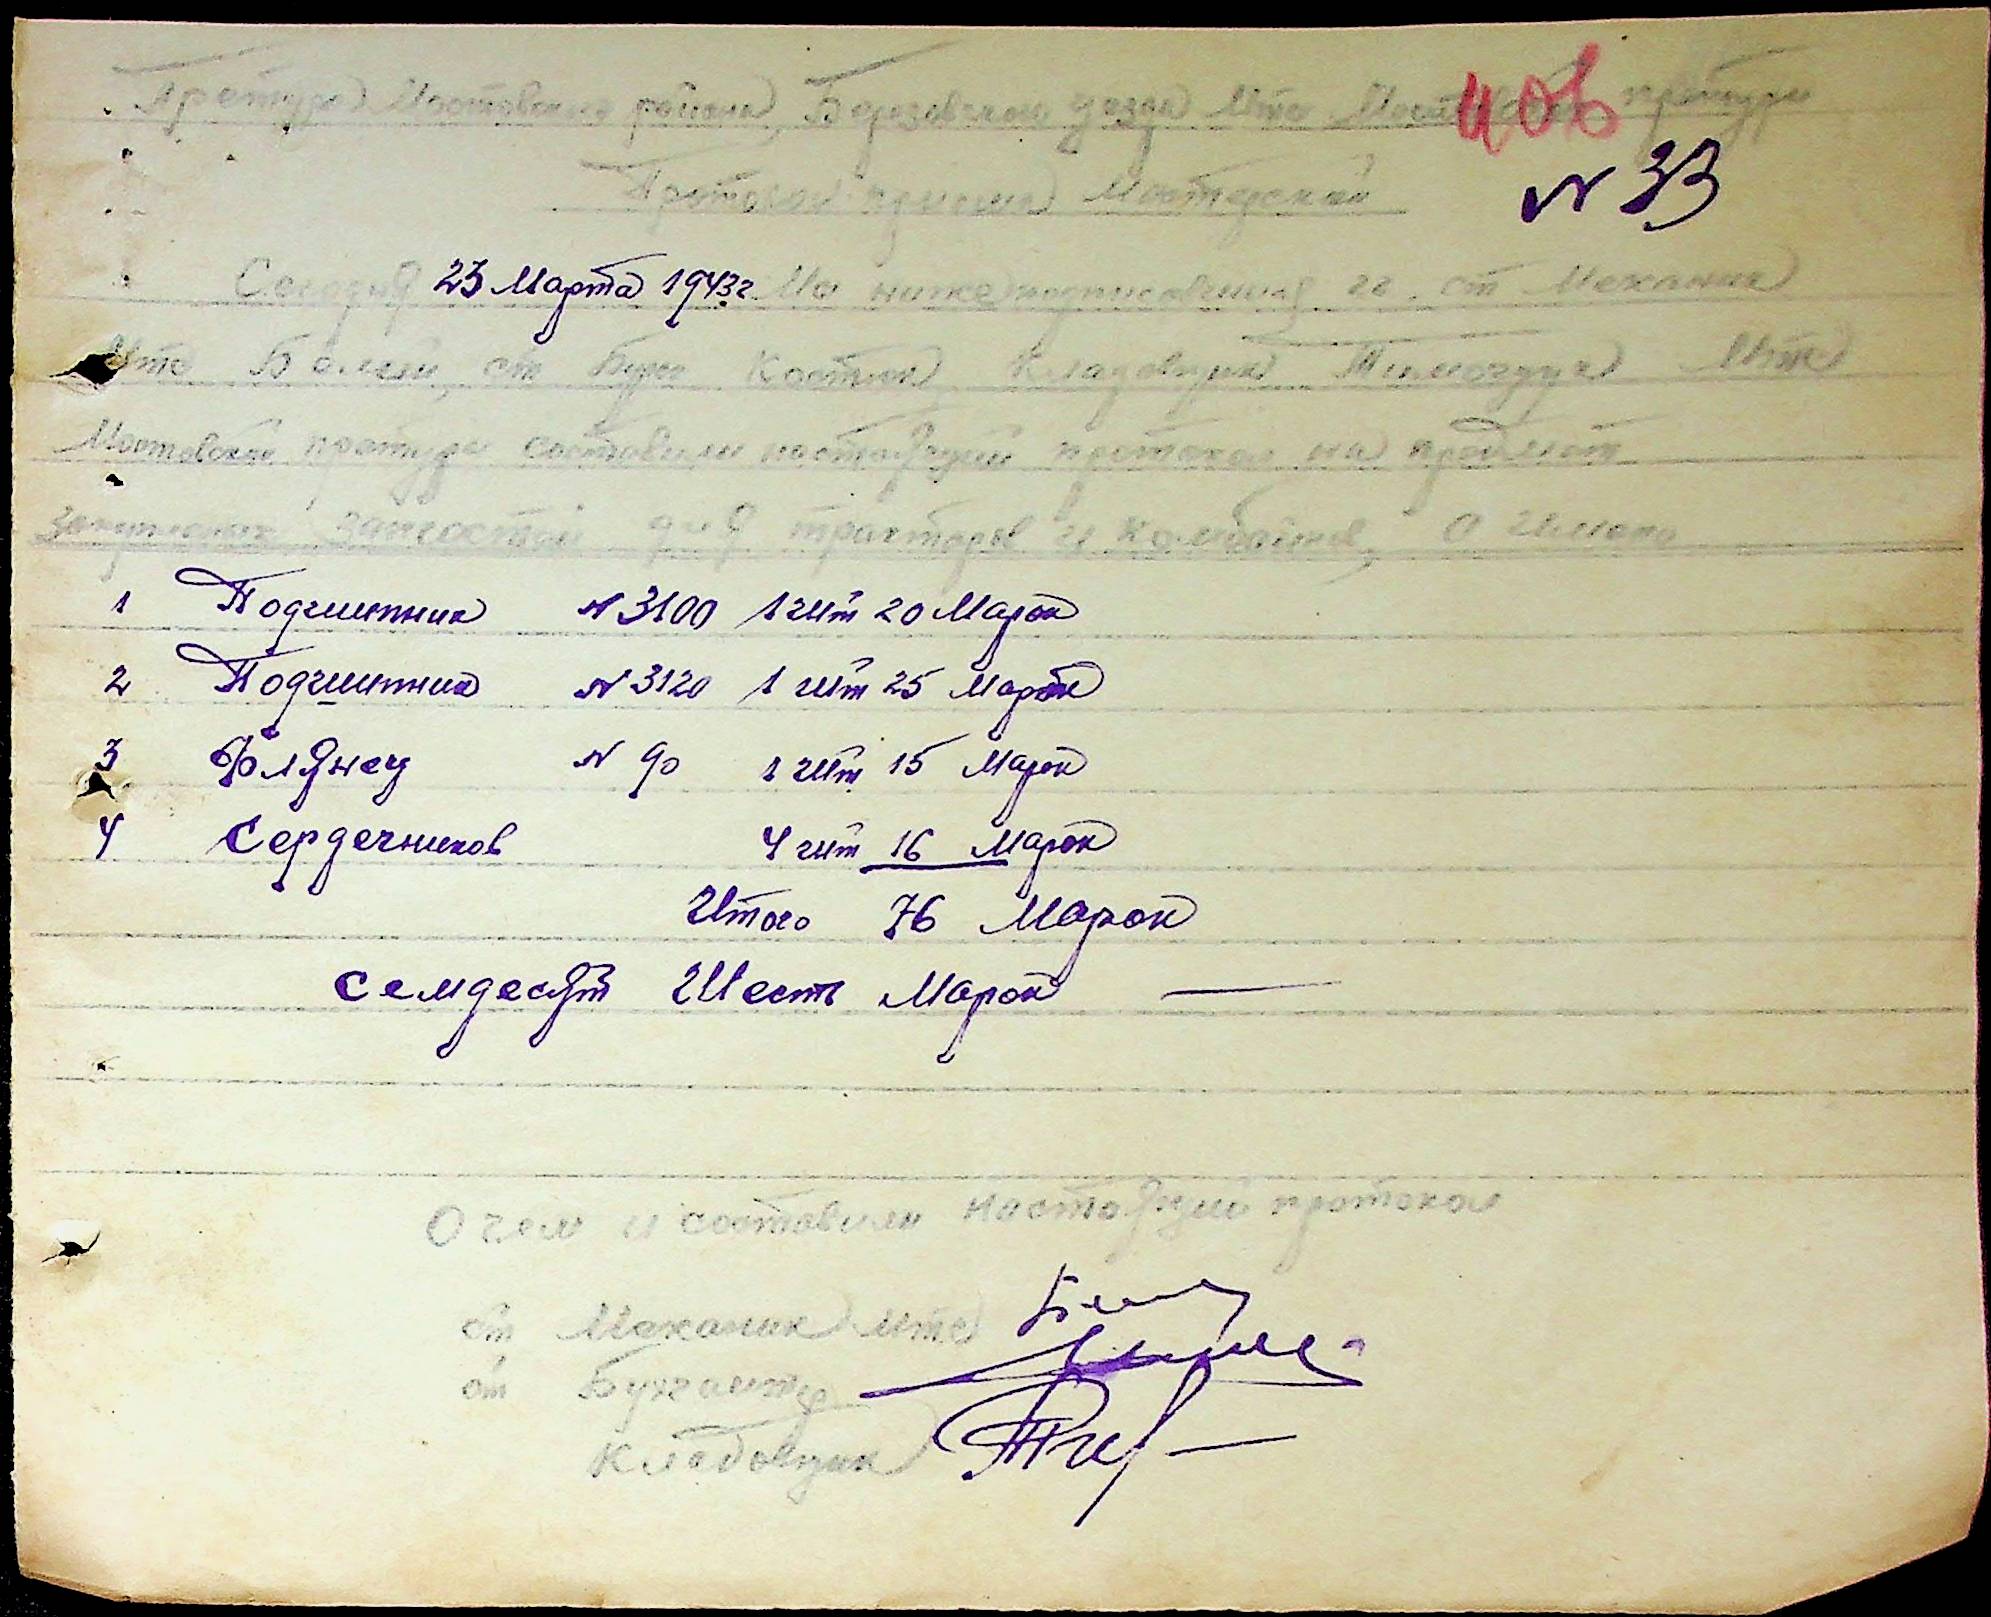 Претура Мостовского района, Березовского уезда Мтс Мостовской претуры
Протокол приема Мастерской
№ 33
Сегодня 23 Марта 1943 г Мы нижеподписавшиеся гг. ст Механик
Мтс ст Бух Костюк, Кладовщик Мтс
Мостовской претуры составили настоящий протокол на предмет
запчастей для тракторов и комбайнов, а имено
1 Подшипник № 3100 1 шт 20 Марок
2 Подшипник № 3120 1 шт 25 Марок
3 Флянец № 90 1 шт 15 Марок
4 Сердечников 4 шт 16 Марок
Итого 76 Марок
Семдесят Шесть Марок —
О чем и составили настоящий протокол
ст Механик Мтс
ст Бухгалтер
Кладовщик